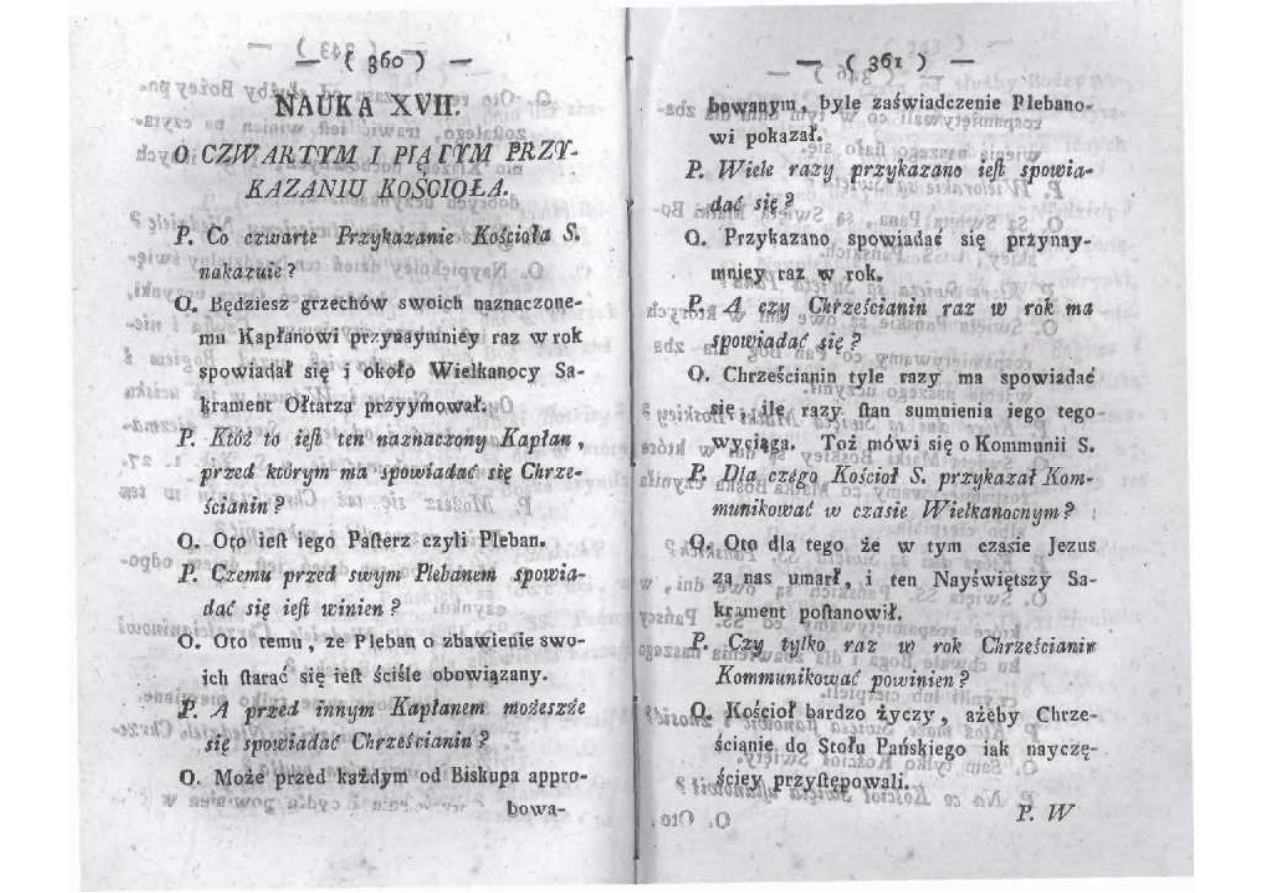 — ( 360 ) —
NAUKA XVII.
O CZWARTYM I PIĄTYM PRZY-
KAZANIU KOŚCIOŁA.
P. Co czwarte Przykazanie Kościoła S.
nakazuie?
O. Będziesz grzechów swoich naznaczone-
mu Kapłanowi przynaymniéy raz w rok
spowiadał się i około Wielkanocy Sa-
krament Ołtarza przyymował.
P. Któż to ieſt ten naznaczony Kapłan,
przed którym ma spowiadać się Chrze-
ścianin?
O. Oto ieſt iego Paſterz czyli Pleban.
P. Czemu przed swym Plebanem spowia-
dać się ieſt winien?
O. Oto temu, ze Pleban o zbawienie swo-
ich ſtarać się ieſt ściśle obowiązany.
P. A przed innym Kapłanem możeszże
się spowiadać Chrześcianin?
O. Może przed każdym od Biskupa appro-
bowa-
— ( 361 ) —
bowanym, byle zaświadczenie Plebano-
wi pokazał.
P. Wiele razy przykazano ieſt spowia-
dać się?
O. Przykazano spowiadać się przynay-
mniey raz w rok.
P. A czy Chrześcianin raz w rok ma
spowiadać się?
O. Chrześcianin tyle razy ma spowiadać
się, ile razy ſtan sumnienia iego tego
wyciąga. Toż mówi się o Kommunii S.
P. Dla czego Kościoł S. przykazał Kom-
munikować w czasie Wielkanocnym?
O. Oto dla tego że w tym czasie Jezus
za nas umarł, i ten Nayświętszy Sa-
krament poſtanowił.
P. Czy tylko raz w rok Chrześcianin
Kommunikować powinien?
O. Kościoł bardzo życzy, ażeby Chrze-
ścianie do Stołu Pańskiego iak nayczę-
ściey przyſtępowali.
P. W